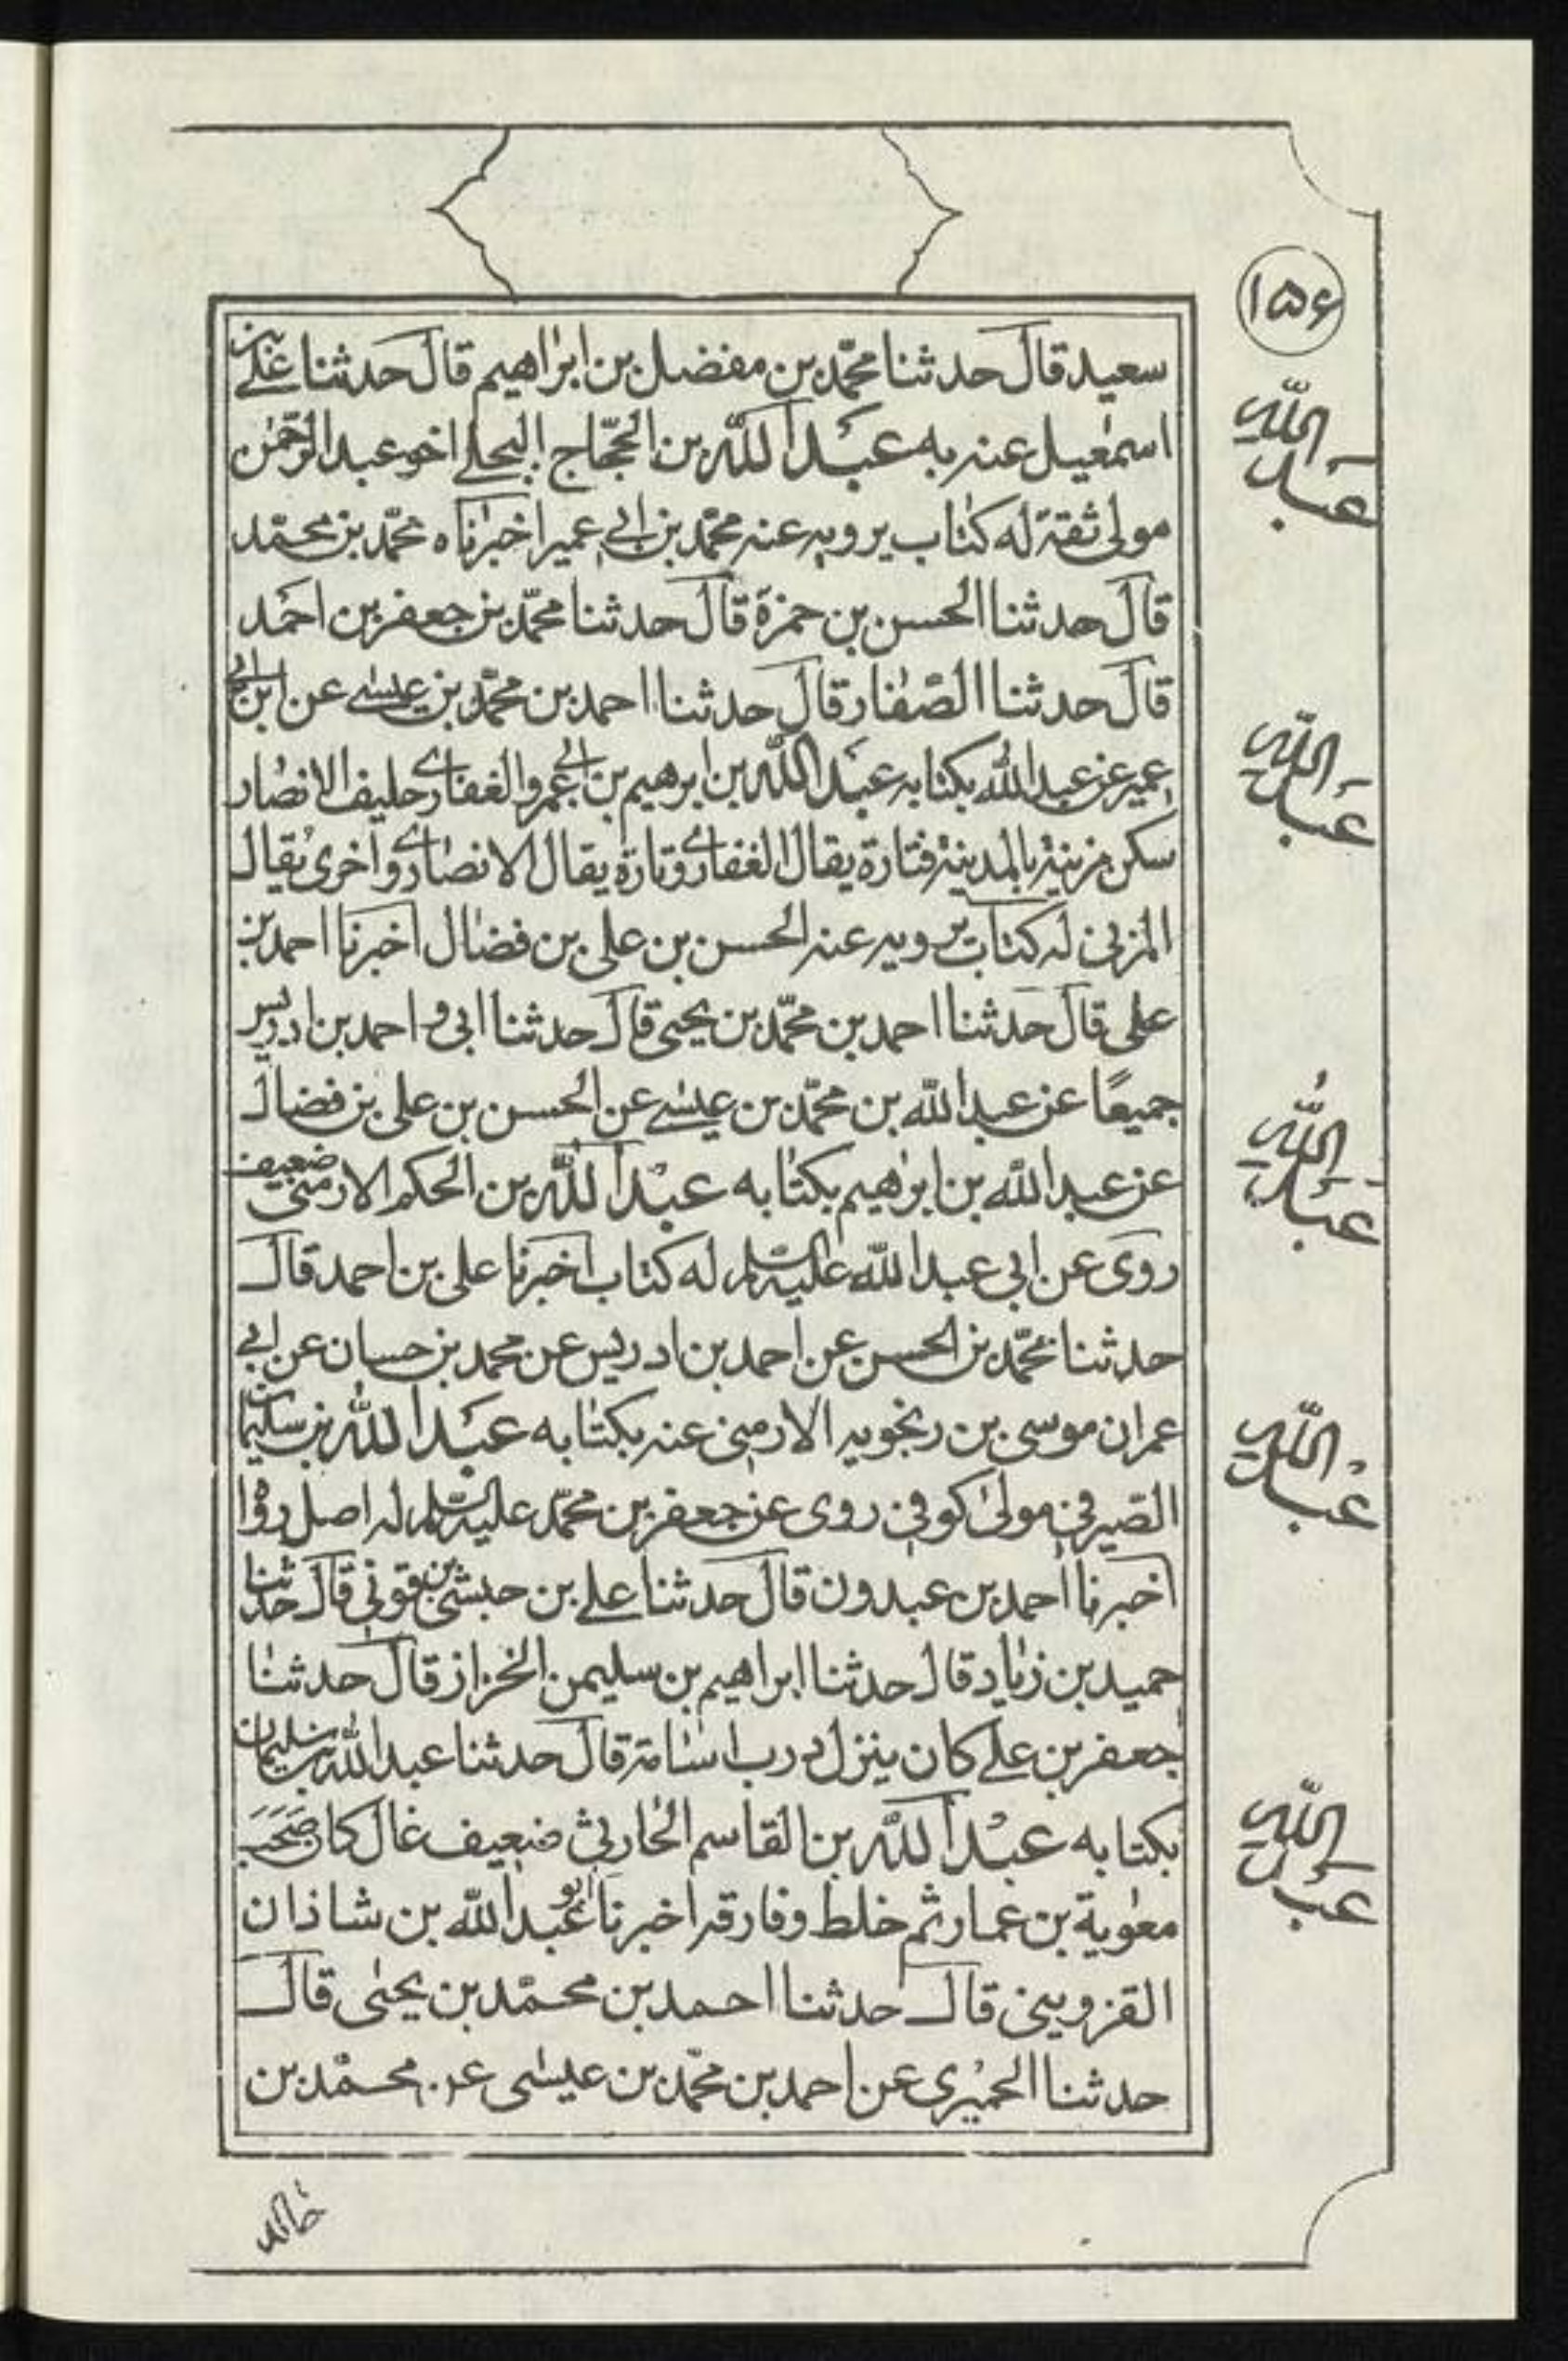 ١٥۶
سعيد قال حدثنا محمّد بن مفضل بن ابراهيم قال حدثنا علي بن
اسمعيل عنه به عبد الله بن الحجّاج البجلي اخو عبد الرحمٰن
مولى ثقة له كتاب يرويه عنه محمّد بن ابي عمير اخبرناه محمّد بن محمّد
قال حدثنا الحسن بن حمزة قال حدثنا محمّد بن جعفر بن احمد
قال حدثنا الصّفار قال حدثنا احمد بن محمّد بن عيسى عن ابن ابي
عمير عن عبد الله بكتابه عبد الله بن ابرهيم بن ابي عمرو الغفاري حليف الانصار
سكن مزينة بالمدينة فتارة يقال الغفاري وتارة يقال الانصاري واخرى يقال
المزني له كتاب يرويه عنه الحسن بن علي بن فضال اخبرنا احمد بن
علي قال حدثنا احمد بن محمّد بن يحيى قال حدثنا ابي و احمد بن ادريس
جميعًا عن عبد الله بن محمّد بن عيسى عن الحسن بن علي بن فضال
عن عبد الله بن ابراهيم بكتابه عبد الله بن الحكم الارمني ضعيف
روى عن ابي عبد الله عليه السلام له كتاب اخبرنا علي بن احمد قال
حدثنا محمّد بن الحسن عن احمد بن ادريس عن محمد بن حسان عن ابي
عمران موسى بن رنجويه الارمني عنه بكتابه عبد الله بن سليمان
الصّيرفي مولى كوفي روى عن جعفر بن محمّد عليه السلام له اصل رواه
اخبرنا احمد بن عبدون قال حدثنا علي بن حبشي بن قوني قال حدثنا
حميد بن زياد قال حدثنا ابراهيم بن سليمن الخزاز قال حدثنا
جعفر بن علي كان ينزل درب اسامة قال حدثنا عبد الله بن سليمان
بكتابه عبد الله بن القاسم الحارثي ضعيف غال كان صحب
معوية بن عمار ثم خلط وفارقه اخبرنا ابو عبد الله بن شاذان
القزويني قال حدثنا احمد بن محمّد بن يحيى قال
حدثنا الحميري عن احمد بن محمّد بن عيسى عن محمّد بن
خالد
عبد الله
عبد الله
عبد الله
عبد الله
عبد الله